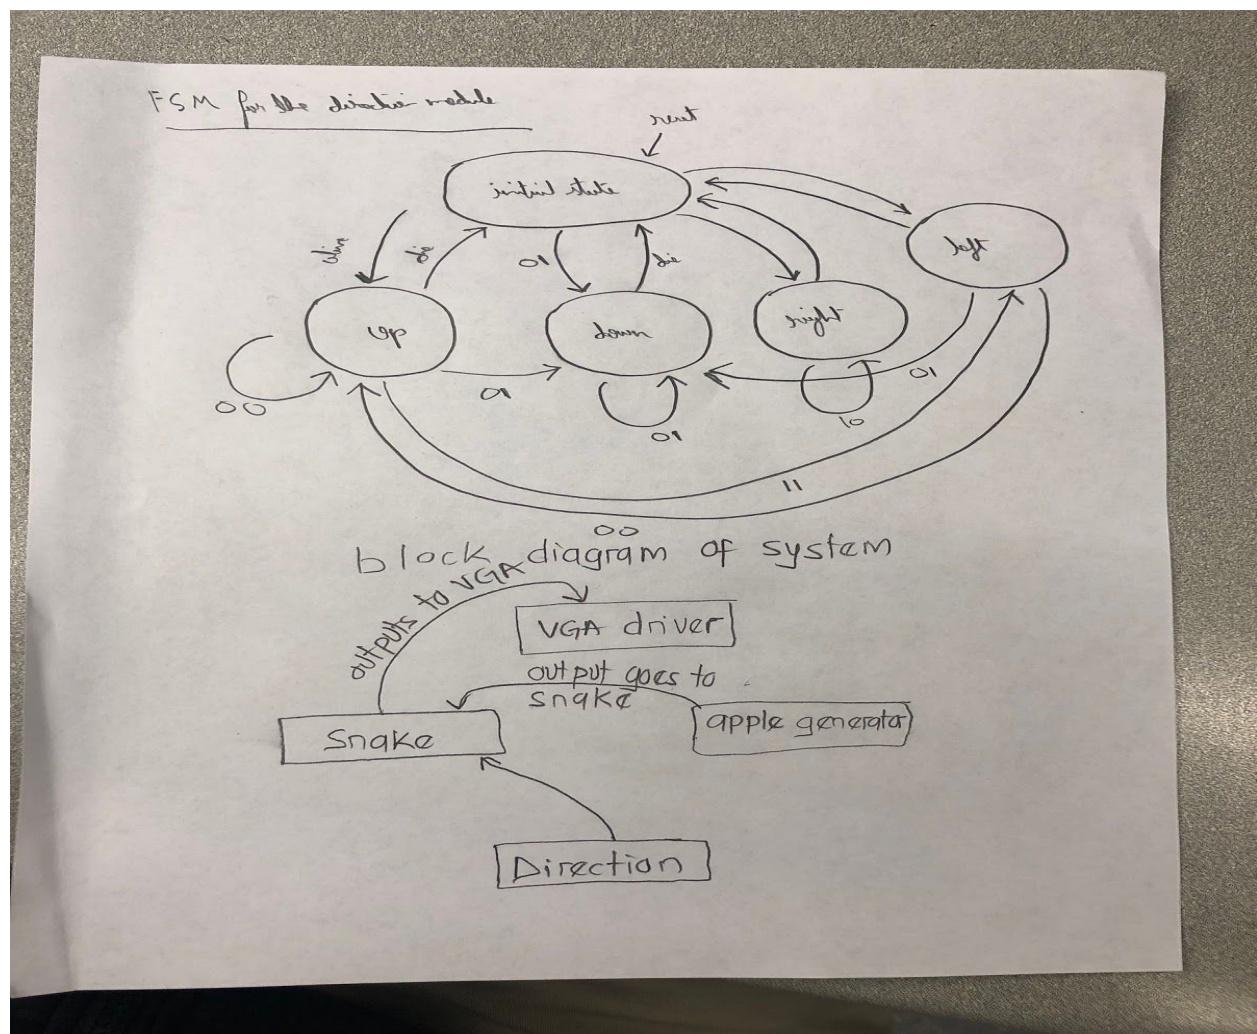 FSM for the direction module
reset
initial state
left
alive
die
01
die
up
down
right
00
01
01
10
01
11
00
block diagram of system
outputs to VGA
VGA driver
output goes to
snake
apple generator
Snake
Direction